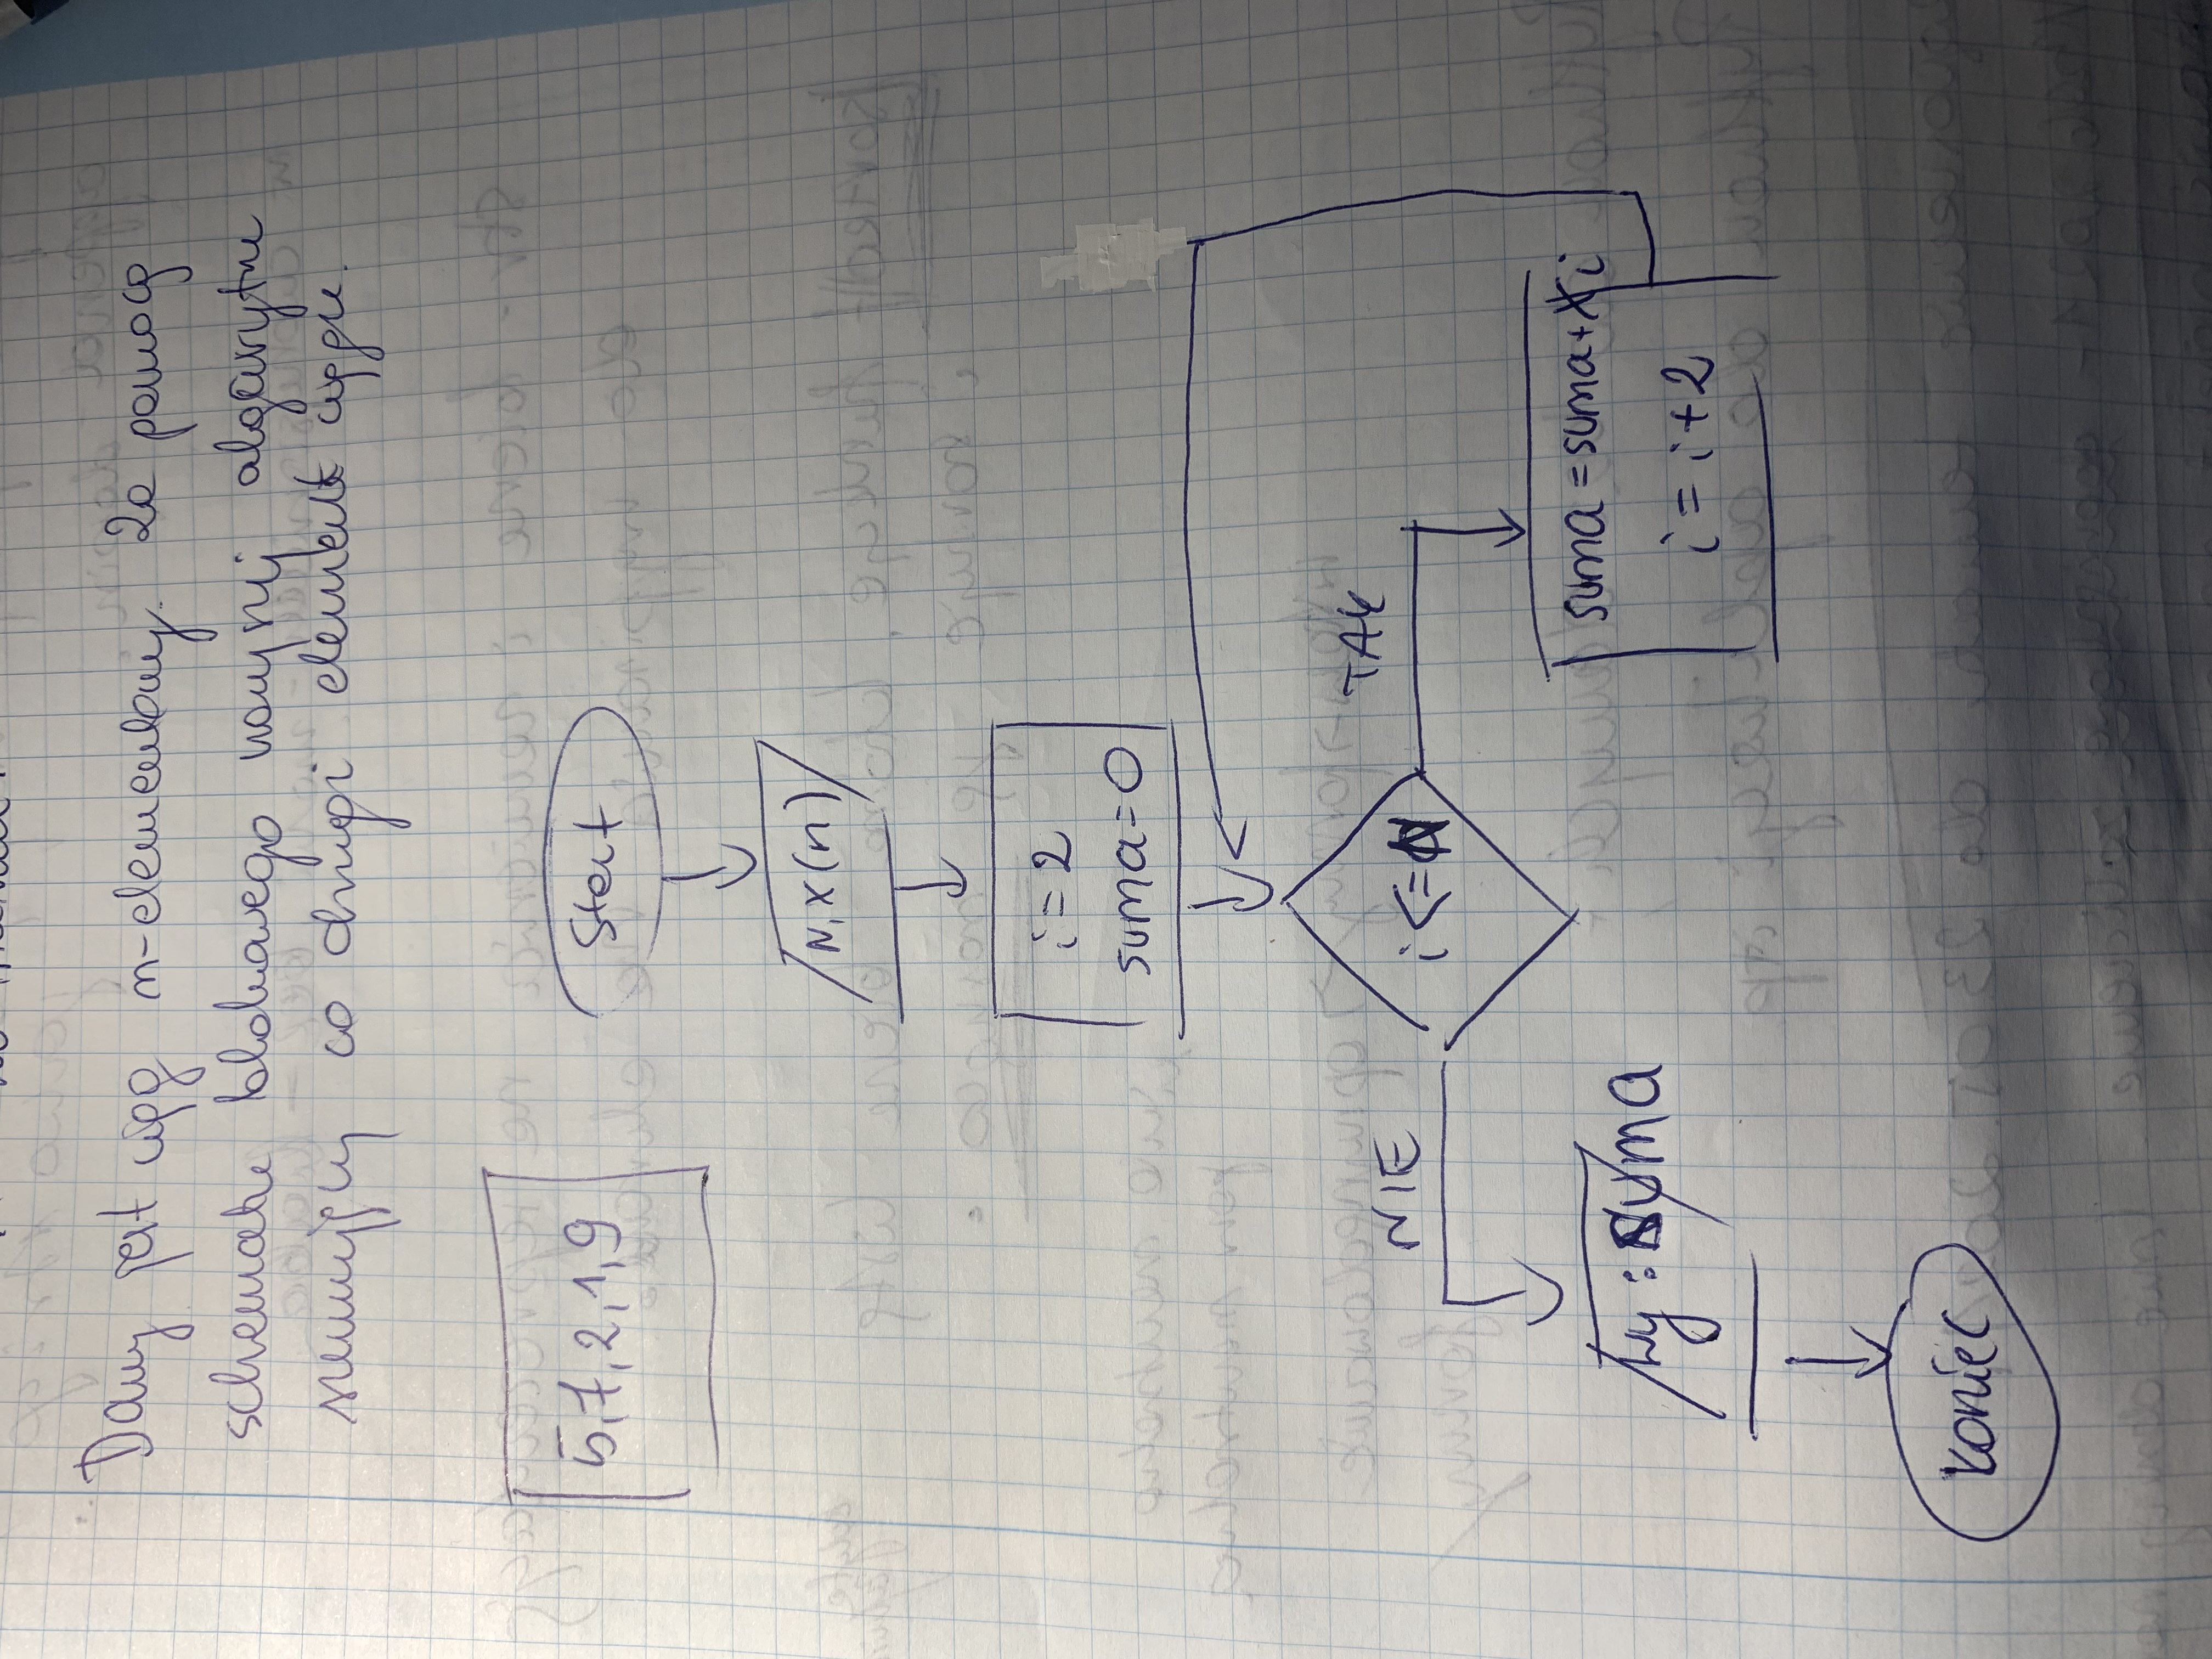 Dany jest ciąg n-elementowy. Za pomocą
schematu blokowego narysuj algorytm
sumujący co drugi element ciągu.
5,7,2,1,9
Start
N,X(n)
i=2
suma=0
i<=N
NIE
TAK
suma=suma+Xi
i=i+2
Wy:Suma
koniec